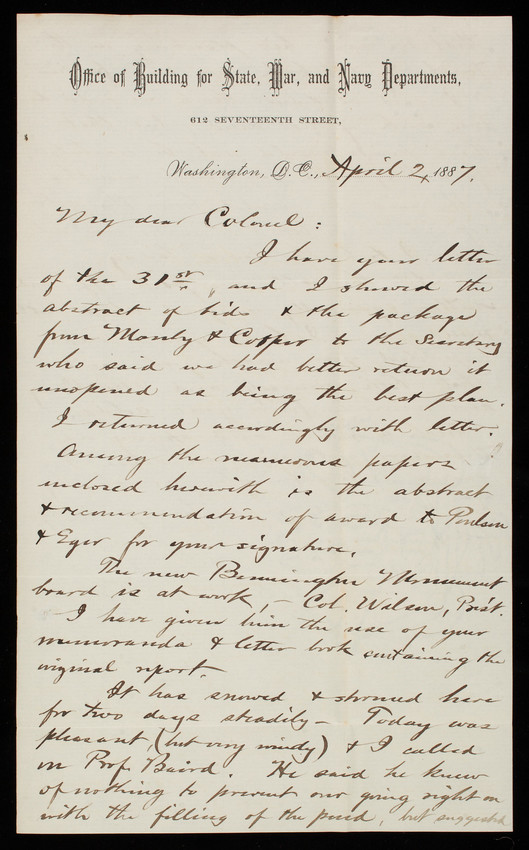 Office of Building for State, War, and Navy Departments,
612 SEVENTEENTH STREET,
Washington, D.C., April 2, 1887.
My dear Colonel:
I have your letter
of the 31st, and I showed the
abstract of bids & the package
from Manly & Cooper to the Secretary
who said we had better return it
unopened as being the best plan.
I returned accordingly with letter.
Among the numerous papers
inclosed herewith is the abstract
& recommendation of award to Poulson
& Eger for your signature.
The new Bennington Monument
board is at work, - Col. Wilson, Prest.
I have given him the use of your
memoranda & letter book containing the
original report.
It has snowed & stormed here
for two days steadily - Today was
pleasant, (but very windy) & I called
on Prof. Baird. He said he knew
of nothing to prevent our going right on
with the filling of the pond, but suggested